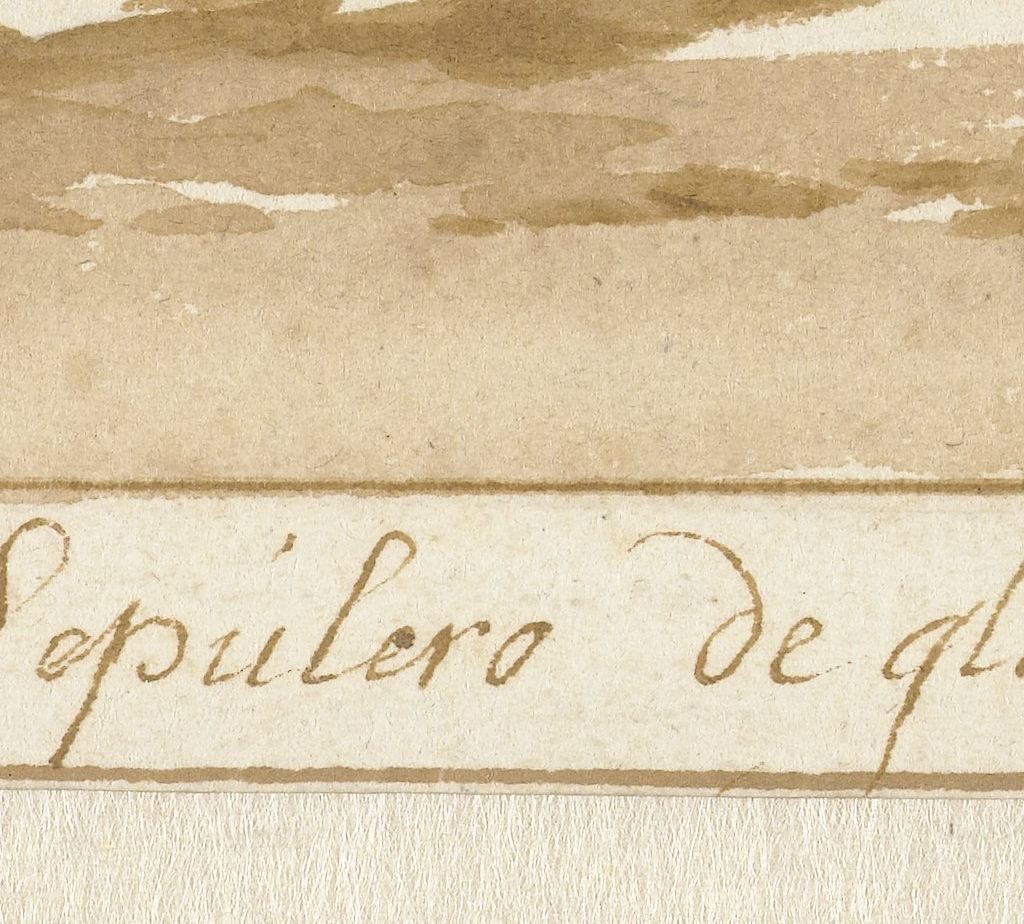 Sepulero de gl